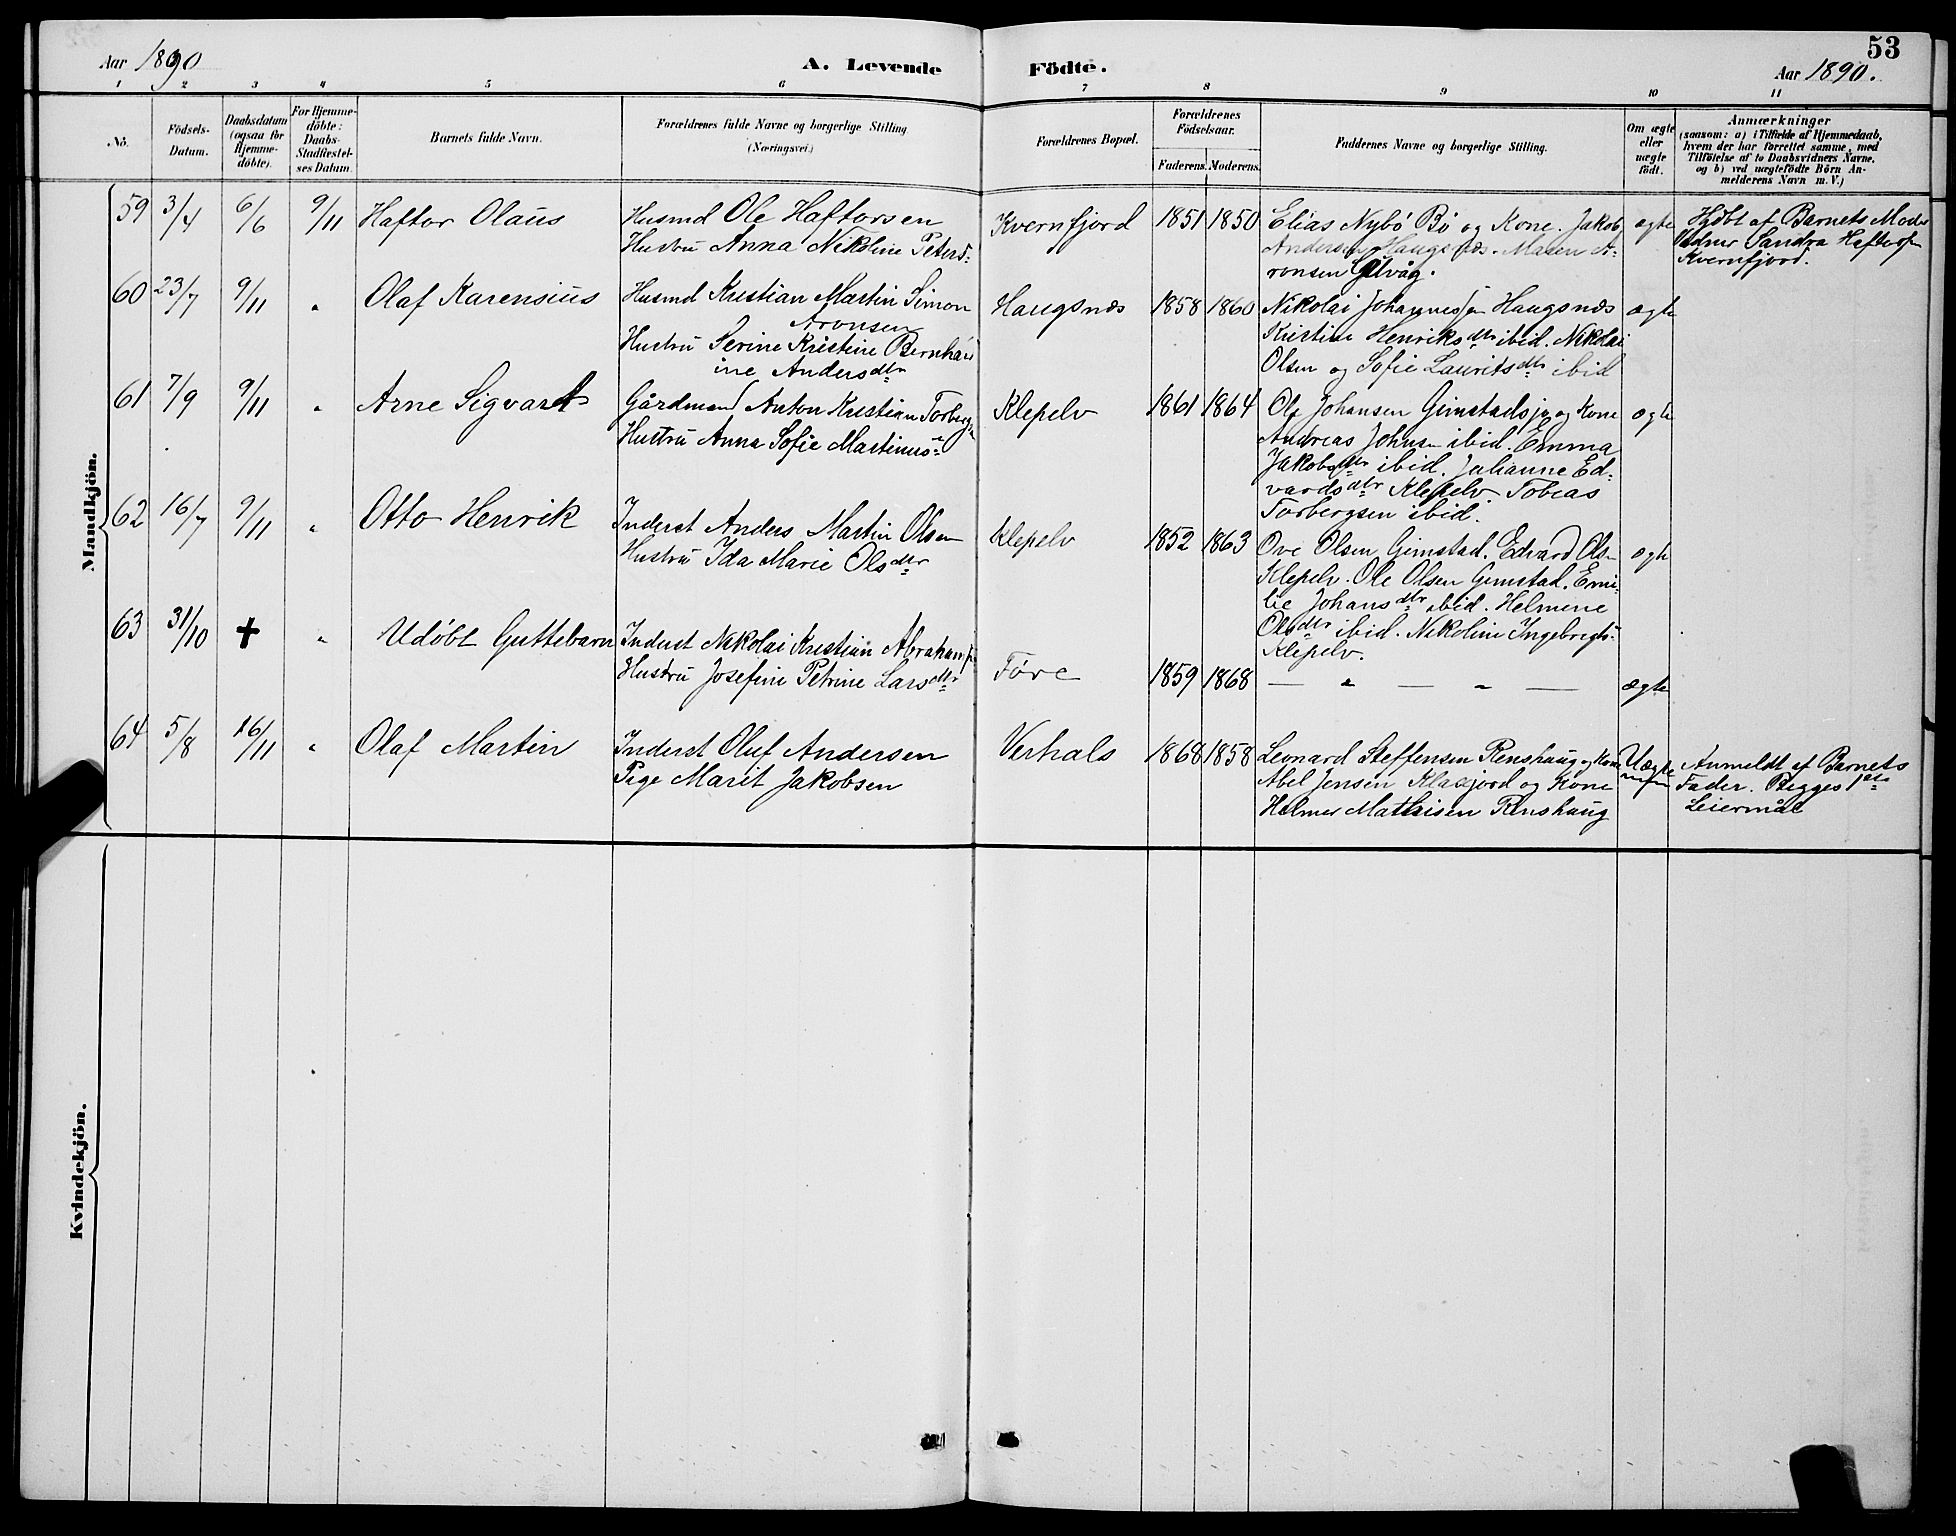 53
Aar 1890
A. Levende
Födte.
Aar 1890.
1 2 3 4 5 6 7 8 9 10 11
No.
Födsels-
Datum.
Daabsdatum
(ogsaa for
Hjemme-
döbte).
For Hjemme-
döbte:
Daabs-
Stadfestel-
ses Datum.
Barnets fulde Navn.
Forældrenes fulde Navne og borgerlige Stilling
(Næringsvei.)
Forældrenes Bopæl.
Forældrenes
Födselsaar.
Faderens. Moderens.
Faddernes Navne og borgerlige Stilling.
Om ægte
eller
uægte
født.
Anmærkninger
(saasom: a) i Tilfælde af Hjemmedaab,
hvem der har forrettet samme, med
Tilföielse af to Daabsvidners Navne,
og b) ved uægtefödte Börn An-
melderens Navn m. V.)
Mandkjön.
59 3/4 6/6 9/11 Haftor Olaus
Husmd Ole Haftorsen
Hustru Anna Nikoline Petersd:
Kvernfjord 1851 1850
Elias Nybø Bø og Kone. Jakob
Andersen Haugsnæs. Maren A-
ronsen Gilvåg.
ægte
Hjdbt af Barnets Moder
Vidner Sandra Haftors
Kvernfjord.
60 23/7 9/11 " Olaf Karensius
Husmd Kristian Martin Simon
Aronsen
Hustru Serine Kristine Bernhar
ine Andersdtr
Haugsnæs 1858 1860
Nikolai Johannessen Haugsnæs
Kristine Henriksdtr ibid. Nikolai
Olsen og Sofie Lauritsdtr ibid
ægte
61 7/9 9/11 " Arne Sigvart
Gårdmand Anton Kristian Torbergsn
Hustru Anna Sofie Martinus:
Klepelv 1861 1864
Ole Johansen Gimstadsjø og Kone
Andreas Johnsen ibid. Emma
Jakobsdtr ibid. Johanne Ed-
vardsdtr Klepelv Tobias
Torbergsen ibid.
ægte
62 16/7 9/11 " Otto Henrik
Inderst Anders Martin Olsen
Hustru Ida Marie Olsdtr
Klepelv 1852 1863
Ove Olsen Gimstad. Edvard Olsn
Klepelv. Ole Olsen Gimstad. Emi-
lie Johansdtr ibid. Helmine
Olsdtr ibid. Nikoline Ingebrigts:
Klepelv.
ægte
63 31/10 + " Udøbt Guttebarn
Inderst Nikolai Kristian Abrahams
Hustru Josefine Petrine Larsdtr
Føre 1859 1868 — " — " — ægte
64 5/8 16/11 " Olaf Martin
Inderst Oluf Andersen
Pige Marit Jakobsen
Verhals 1868 1858
Leonard Steffensen Renshaug og Kone
Abel Jensen Klaxjord og Kone
Helmer Mathisen Renshaug
Uægte
Anmeldt af Barnets
Fader. Begges 1ste
Leiermål
Kvindekjön.